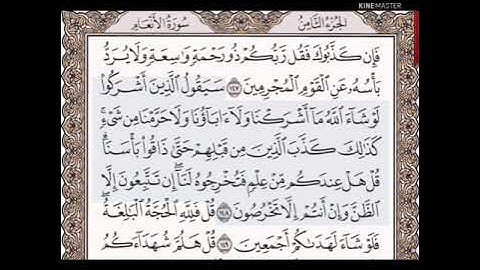 KINEMASTER
الجزء الثامن
سورة الأنعام
فَإِن كَذَّبُوكَ فَقُل رَّبُّكُمْ ذُو رَحْمَةٍ وَاسِعَةٍ وَلَا يُرَدُّ
بَأْسُهُۥ عَنِ ٱلْقَوْمِ ٱلْمُجْرِمِينَ ١٤٧ سَيَقُولُ ٱلَّذِينَ أَشْرَكُوا۟
لَوْ شَآءَ ٱللَّهُ مَآ أَشْرَكْنَا وَلَآ ءَابَآؤُنَا وَلَا حَرَّمْنَا مِن شَىْءٍۚ
كَذَٰلِكَ كَذَّبَ ٱلَّذِينَ مِن قَبْلِهِمْ حَتَّىٰ ذَاقُوا۟ بَأْسَنَاۗ
قُلْ هَلْ عِندَكُم مِّنْ عِلْمٍ فَتُخْرِجُوهُ لَنَآۖ إِن تَتَّبِعُونَ إِلَّا
ٱلظَّنَّ وَإِنْ أَنتُمْ إِلَّا تَخْرُصُونَ ١٤٨ قُلْ فَلِلَّهِ ٱلْحُجَّةُ ٱلْبَٰلِغَةُۖ
فَلَوْ شَآءَ لَهَدَىٰكُمْ أَجْمَعِينَ ١٤٩ قُلْ هَلُمَّ شُهَدَآءَكُمُ